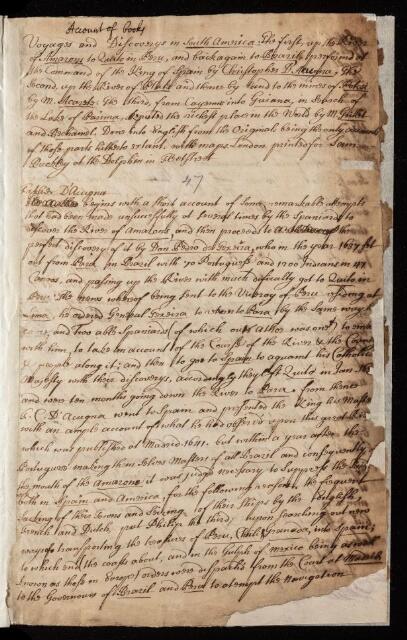 Account of books
Voyages and Discoverys in South America, the first, up the River
of Amazons to Quito in Peru, and back again to Brazil, perform'd at
the Command of the King of Spain by Christopher D'Acugna, The
Second, up the River of Plata and thence by Land to the mines of Potosi
by M. Acarete, the third, from Cayenne into Guiana, in search of
the Lake of Parima, reputed the richest place in the World by M. Grillet
and Bechamel. Done into English from the Originals being the only accounts
of those parts hitherto extant. with maps London printed for Sam:
Buckley at the Dolphin in
47
D'Acugna
begins with a short account of Some remarkable attempts
that had been made unsuccessfully at several times by the Spaniards to
discover the River of Amazons, and then proceeds to
perfect discovery of it by Don Pedro de Texeira, who in the year 1637 set
out from Para in Brazil with 70 Portugueses and 1200 Indians in 47
Canoos, and passing up the River with much difficulty got to Quito in
Peru. The news whereof being sent to the Viceroy of Peru residing at
Lima, he ordered General Texeira to return to Para by the same way
and Two able Spaniards (of which our Author was one) to
with him, to take an account of the Course of the River &
people along it; and then to go to Spain to aquaint his Catholic
Majesty with their discoverys, accordingly they left Quito in Jan. 1639
and were ten months going down the River to Para, from thence
F. C. D'Acugna went to Spain and presented the King his Master
with an ample account of what he had observ'd upon this great River
which was published at Madrid 1641. but within a year after the
Portugueses making them selves Masters of all Brazil and consequently
the mouth of the Amazone, it was judged necessary to suppress the
both in Spain and America, for the following reason, the frequent
Sacking of their Towns and taking of their Ships by the English
French and Dutch, put Philip the third upon searching out new
ways of transporting the treasure of Peru, Chili & Granada, into Spain,
to which end, the coasts about, and in the Gulph of Mexico being as well
known as those in Europe, orders were dispatch'd from the Court at Madrid
to the Governours of Brazil and Peru to attempt the Navigation